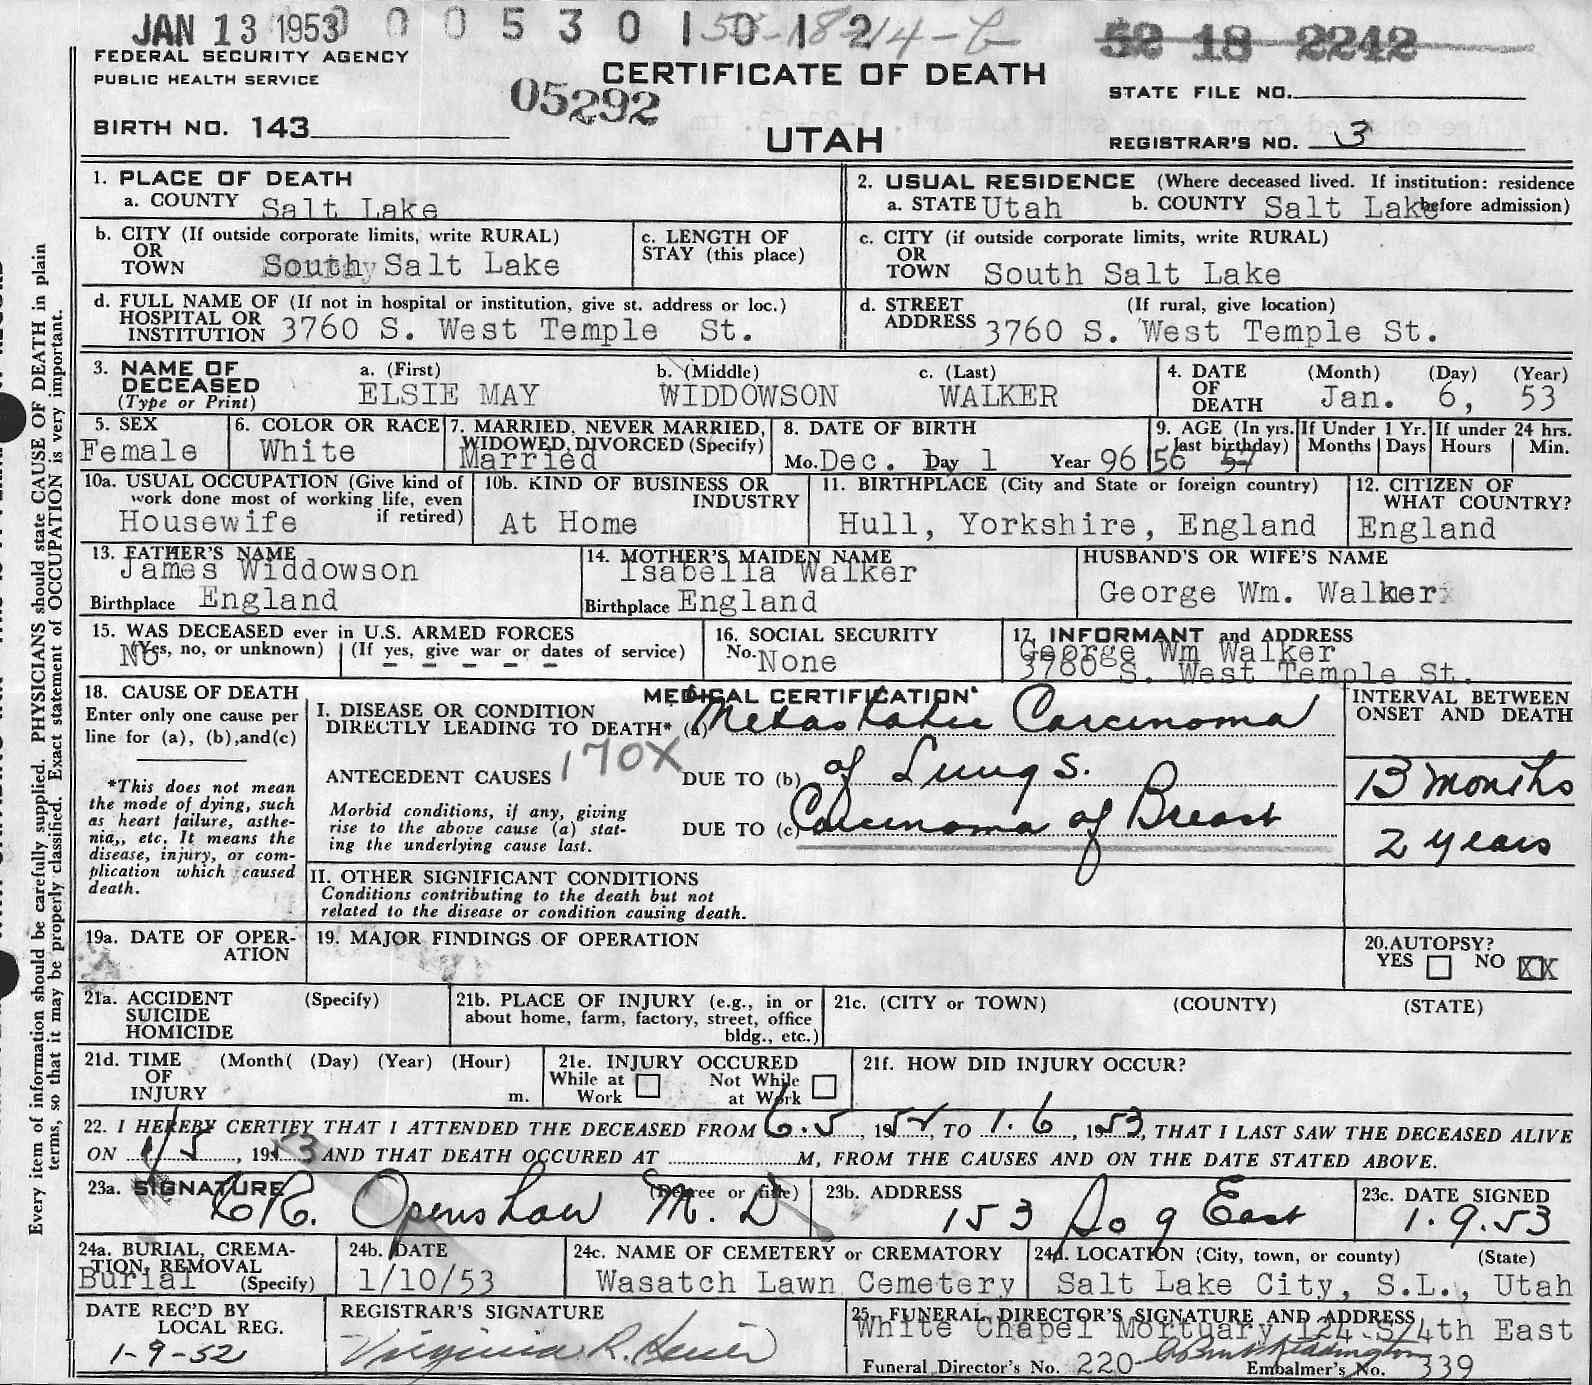 JAN 13 1953 0 0 5 3 0 1 0 1 2
52 18 2242
FEDERAL SECURITY AGENCY
PUBLIC HEALTH SERVICE
CERTIFICATE OF DEATH
05292
STATE FILE NO.
BIRTH NO. 143
UTAH
REGISTRAR'S NO. 3
1. PLACE OF DEATH
a. COUNTY Salt Lake
2. USUAL RESIDENCE (Where deceased lived. If institution: residence before admission)
a. STATE Utah b. COUNTY Salt Lake
b. CITY (If outside corporate limits, write RURAL)
OR
TOWN South Salt Lake
c. LENGTH OF
STAY (this place)
c. CITY (if outside corporate limits, write RURAL)
OR
TOWN South Salt Lake
d. FULL NAME OF (If not in hospital or institution, give st. address or loc.)
HOSPITAL OR
INSTITUTION 3760 S. West Temple St.
d. STREET (If rural, give location)
ADDRESS 3760 S. West Temple St.
3. NAME OF
DECEASED
(Type or Print)
a. (First) b. (Middle) c. (Last)
ELSIE MAY WIDDOWSON WALKER
4. DATE (Month) (Day) (Year)
OF
DEATH Jan. 6, 53
5. SEX
Female
6. COLOR OR RACE
White
7. MARRIED, NEVER MARRIED,
WIDOWED, DIVORCED (Specify)
Married
8. DATE OF BIRTH
Mo. Dec. Day 1 Year 96
9. AGE (In yrs. last birthday) If Under 1 Yr. If under 24 hrs.
56 57 Months Days Hours Min.
10a. USUAL OCCUPATION (Give kind of
work done most of working life, even
if retired)
Housewife
10b. KIND OF BUSINESS OR
INDUSTRY
At Home
11. BIRTHPLACE (City and State or foreign country)
Hull, Yorkshire, England
12. CITIZEN OF
WHAT COUNTRY?
England
13. FATHER'S NAME
James Widdowson
Birthplace England
14. MOTHER'S MAIDEN NAME
Isabella Walker
Birthplace England
HUSBAND'S OR WIFE'S NAME
George Wm. Walker
15. WAS DECEASED ever in U.S. ARMED FORCES
(Yes, no, or unknown) (If yes, give war or dates of service)
No - - - - -
16. SOCIAL SECURITY
No. None
17. INFORMANT and ADDRESS
George Wm Walker
3760 S. West Temple St.
18. CAUSE OF DEATH
Enter only one cause per
line for (a), (b), and (c)
*This does not mean
the mode of dying, such
as heart failure, asthe-
nia,, etc. It means the
disease, injury, or com-
plication which caused
death.
MEDICAL CERTIFICATION
I. DISEASE OR CONDITION
DIRECTLY LEADING TO DEATH* (a) Metastatic Carcinoma
ANTECEDENT CAUSES 170X DUE TO (b) of Lungs.
Morbid conditions, if any, giving
rise to the above cause (a) stat-
ing the underlying cause last.
DUE TO (c) Carcinoma of Breast
INTERVAL BETWEEN
ONSET AND DEATH
13 months
2 years
II. OTHER SIGNIFICANT CONDITIONS
Conditions contributing to the death but not
related to the disease or condition causing death.
19a. DATE OF OPER-
ATION
19. MAJOR FINDINGS OF OPERATION
20. AUTOPSY?
YES NO XX
21a. ACCIDENT (Specify)
SUICIDE
HOMICIDE
21b. PLACE OF INJURY (e.g., in or
about home, farm, factory, street, office
bldg., etc.)
21c. (CITY or TOWN) (COUNTY) (STATE)
21d. TIME (Month( (Day) (Year) (Hour)
OF
INJURY m.
21e. INJURY OCCURED
While at Work Not While at Work
21f. HOW DID INJURY OCCUR?
22. I HEREBY CERTIFY THAT I ATTENDED THE DECEASED FROM 6.5, 1952, TO 1.6, 1953, THAT I LAST SAW THE DECEASED ALIVE
ON 1/5, 1953 AND THAT DEATH OCCURED AT M, FROM THE CAUSES AND ON THE DATE STATED ABOVE.
23a. SIGNATURE (Degree or title)
C R. Openshaw M.D
23b. ADDRESS
153 So 9 East
23c. DATE SIGNED
1.9.53
24a. BURIAL, CREMA-
TION, REMOVAL
(Specify)
Burial
24b. DATE
1/10/53
24c. NAME OF CEMETERY or CREMATORY
Wasatch Lawn Cemetery
24d. LOCATION (City, town, or county) (State)
Salt Lake City, S.L., Utah
DATE REC'D BY
LOCAL REG.
1-9-52
REGISTRAR'S SIGNATURE
Virginia R.
25. FUNERAL DIRECTOR'S SIGNATURE AND ADDRESS
White Chapel Mortuary 124 S/4th East
Funeral Director's No. 220 Embalmer's No. 339
Every item of information should be carefully supplied. PHYSICIANS should state CAUSE OF DEATH in plain
terms, so that it may be properly classified. Exact statement of OCCUPATION is very important.